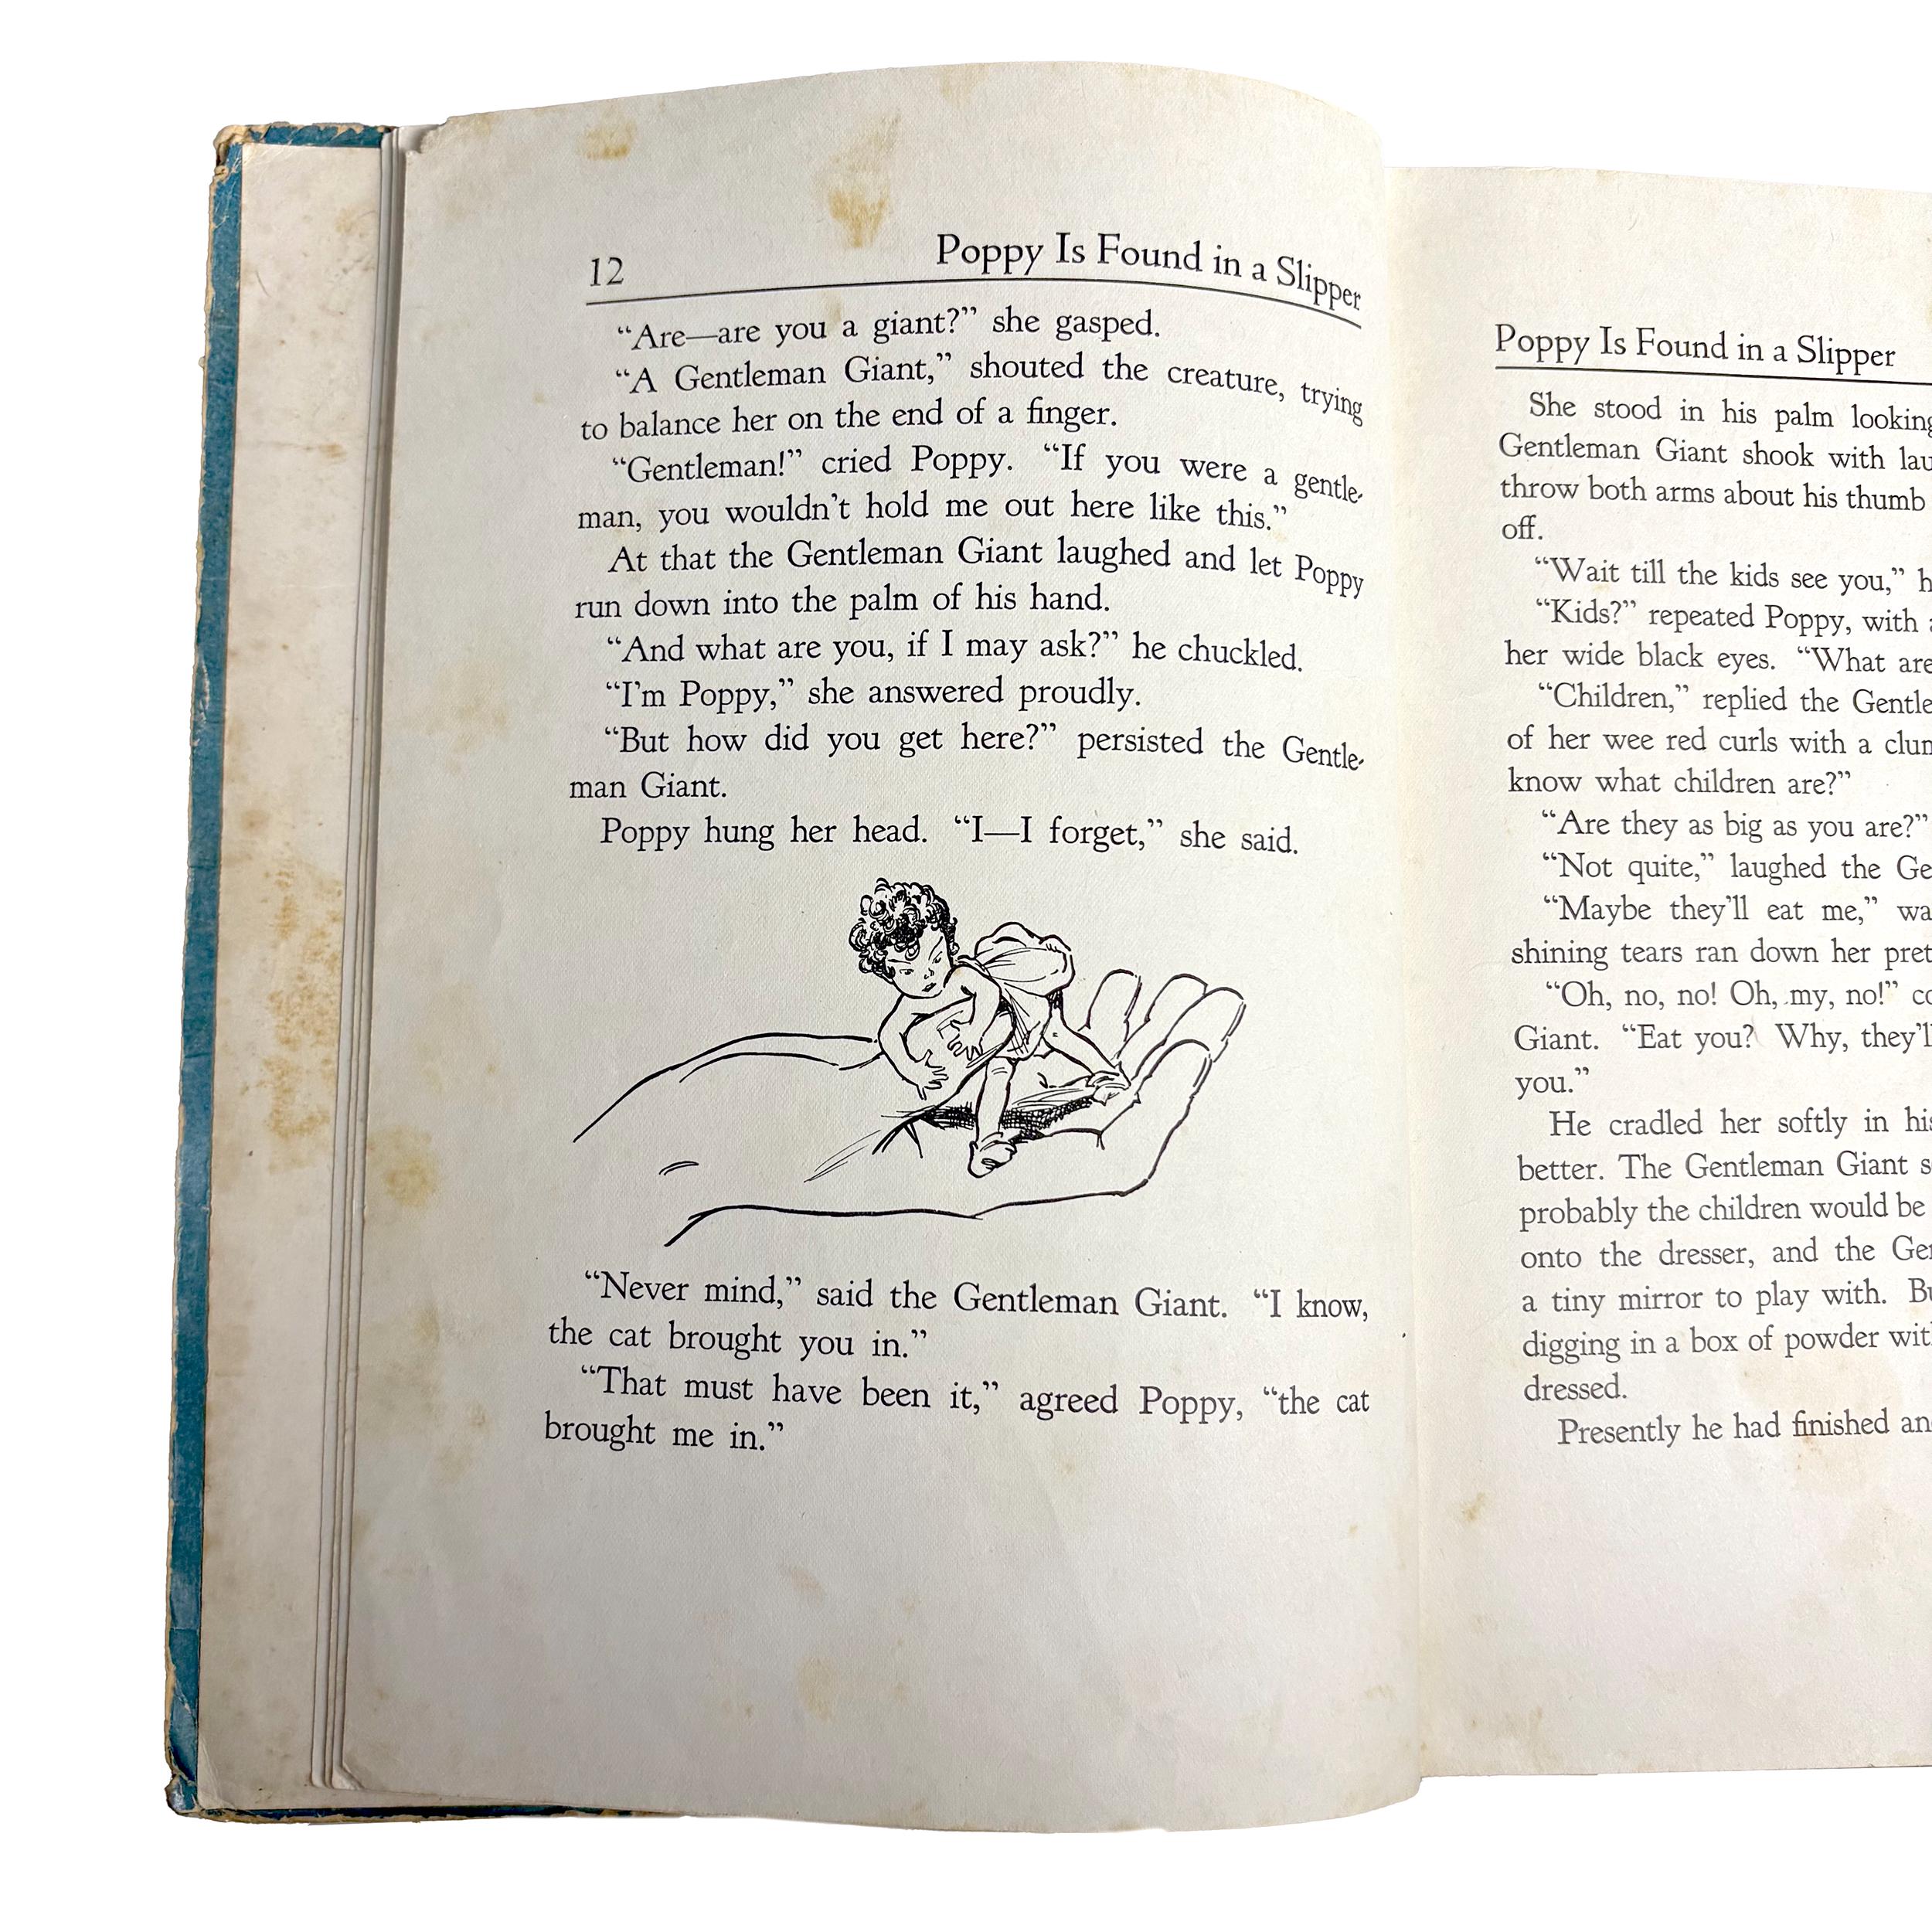 12
Poppy Is Found in a Slipper
“Are—are you a giant?” she gasped.
“A Gentleman Giant,” shouted the creature, trying
to balance her on the end of a finger.
“Gentleman!” cried Poppy. “If you were a gentle-
man, you wouldn't hold me out here like this.”
At that the Gentleman Giant laughed and let Poppy
run down into the palm of his hand.
“And what are you, if I may ask?” he chuckled.
“I'm Poppy,” she answered proudly.
“But how did you get here?” persisted the Gentle-
man Giant.
Poppy hung her head. “I—I forget,” she said.
“Never mind,” said the Gentleman Giant. “I know,
the cat brought you in.”
“That must have been it,” agreed Poppy, “the cat
brought me in.”
Poppy Is Found in a Slipper
She stood in his palm looking
Gentleman Giant shook with
throw both arms about his thumb
off.
“Wait till the kids see you,”
“Kids?” repeated Poppy, with
her wide black eyes. “What are
“Children,” replied the
of her wee red curls with a
know what children are?”
“Are they as big as you are?”
“Not quite,” laughed the
“Maybe they'll eat me,”
shining tears ran down her
“Oh, no, no! Oh, my, no!”
Giant. “Eat you? Why, they'll
you.”
He cradled her softly in his
better. The Gentleman Giant
probably the children would be
onto the dresser, and the
a tiny mirror to play with.
digging in a box of powder
dressed.
Presently he had finished